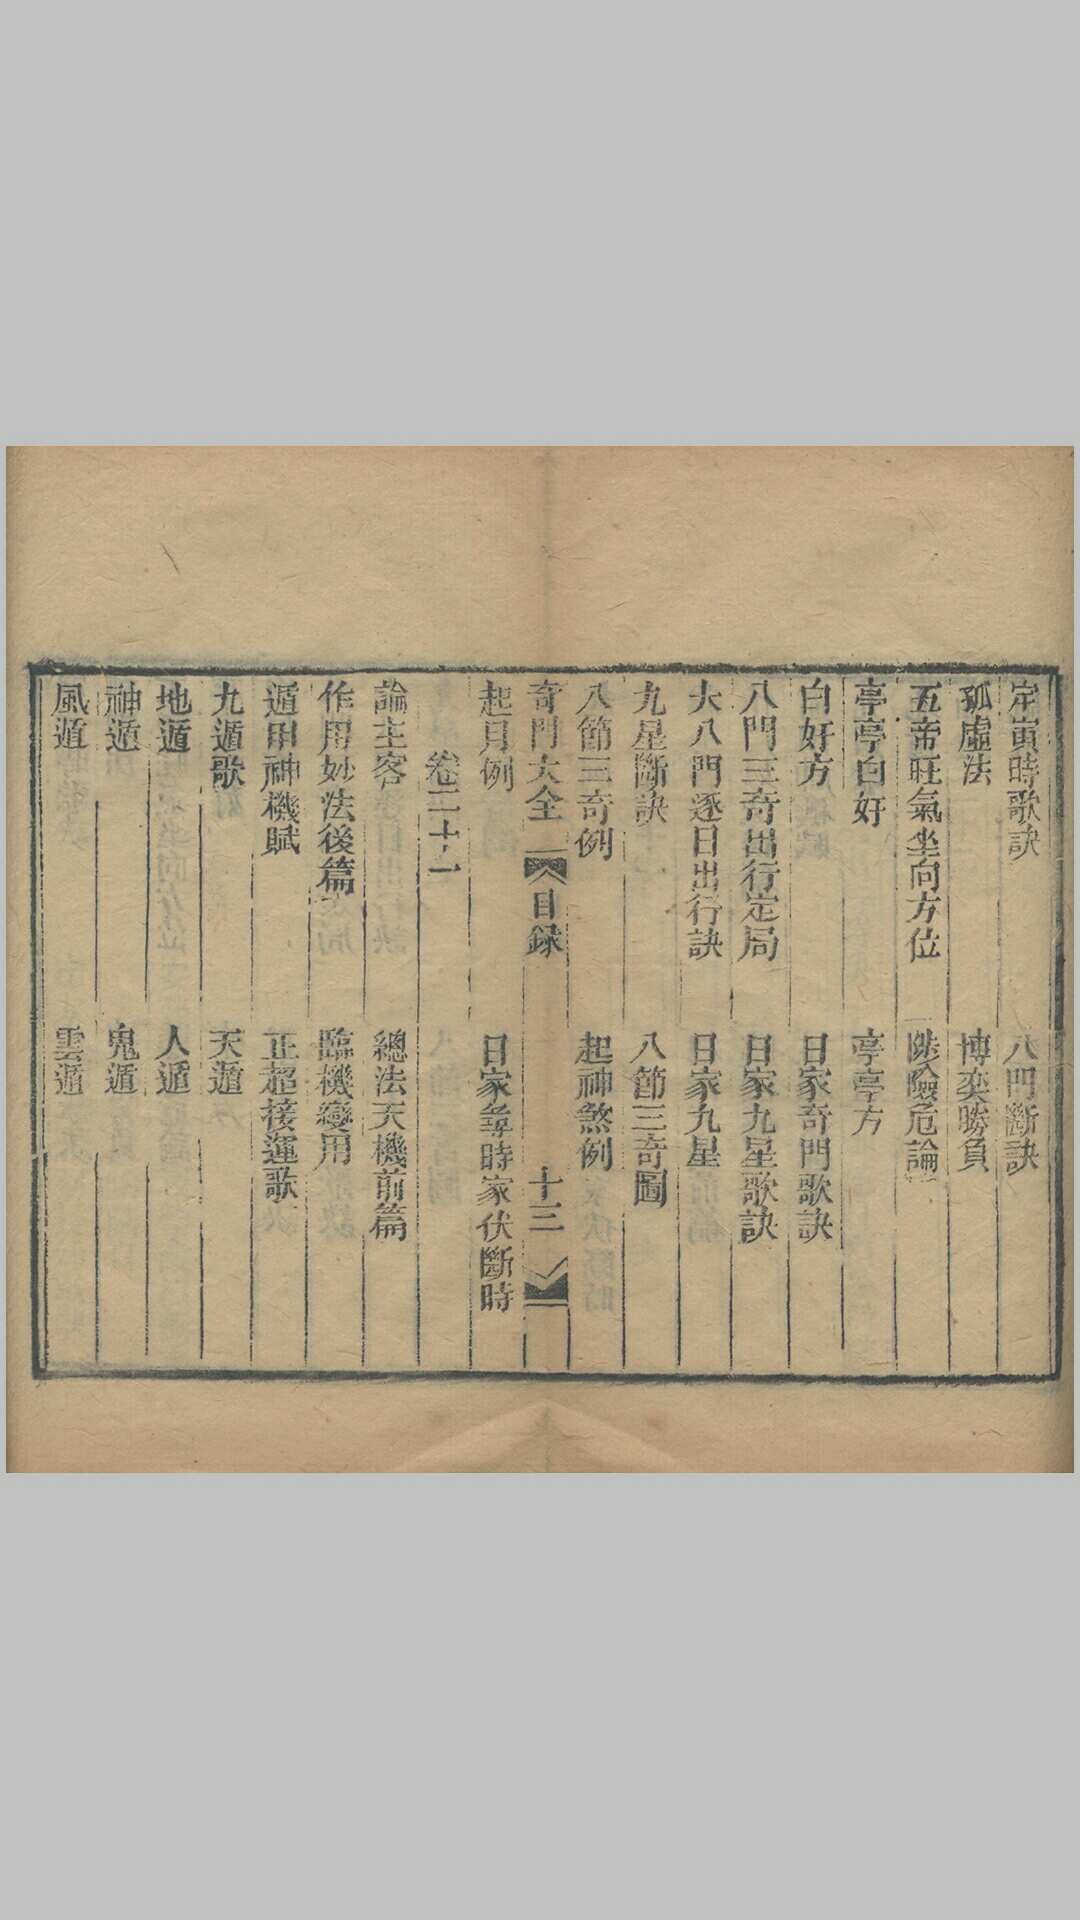 定寅時歌訣　八門斷訣
孤虛法　博奕勝負
五帝旺氣坐向方位　陟險危論
亭亭白奸　亭亭方
白奸方　日家奇門歌訣
八門三奇出行定局　日家九星歌訣
大八門逐日出行訣　日家九星
九星斷訣　八節三奇圖
八節三奇例　起神煞例
奇門大全　目錄　十三
起月例　日家每時家伏斷時
卷二十一
論主客　總法天機前篇
作用妙法後篇　臨機變用
遁甲神機賦　正超接運歌
九遁歌　天遁
地遁　人遁
神遁　鬼遁
風遁　雲遁